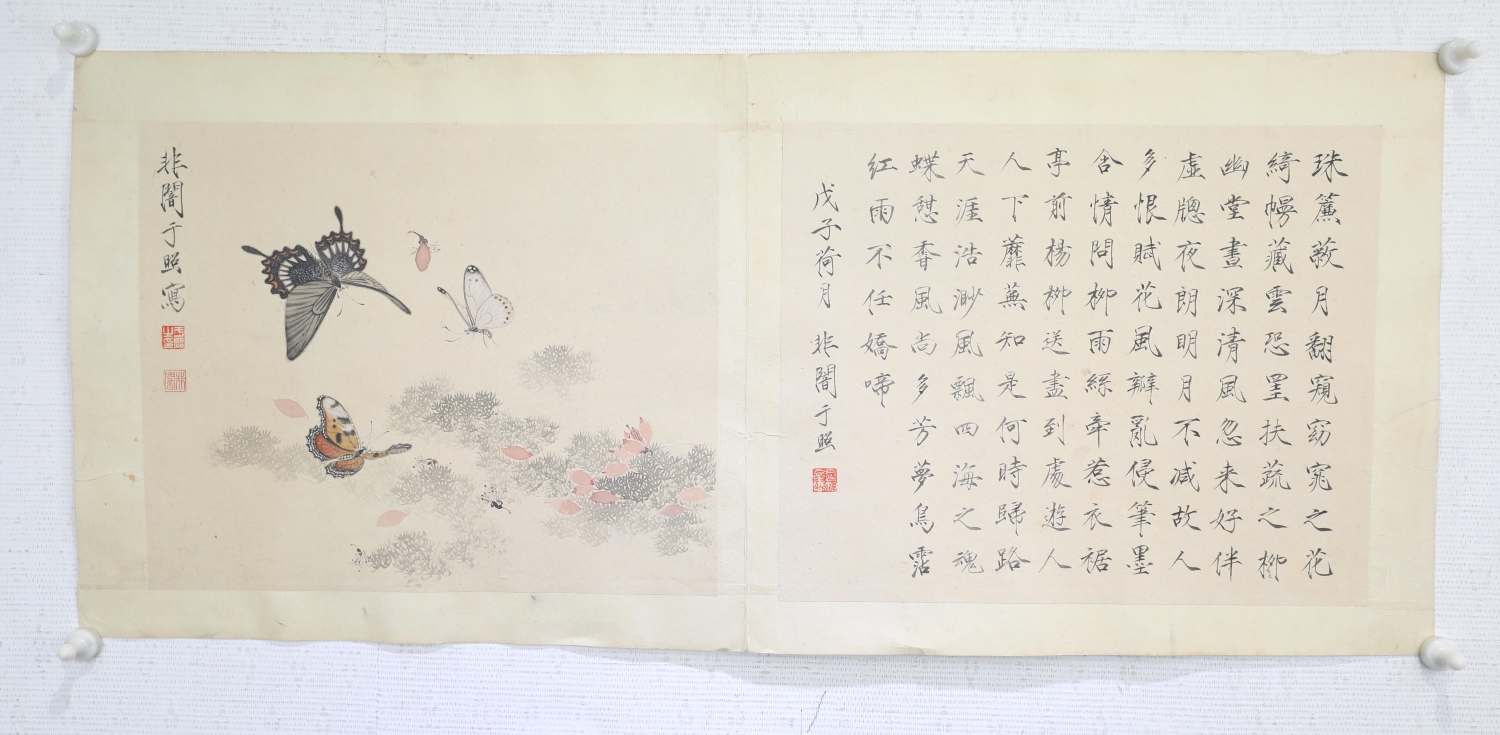 珠簾蔌月翻窺窈窕之花
綺幔藏雲恐罣扶蔬之柳
幽堂晝深清風忽来好伴
虛牕夜朗明月不减故人
多恨賦花風辧亂侵筆墨
含情問柳雨絲牽惹衣裾
亭前楊柳送盡到處遊人
人下蘼蕪知是何時歸路
天涯浩渺風飄四海之魂
蝶憇香風尚多芳夢鳥霑
紅雨不任嬌啼
戊子荷月 非闇于照
非闇于照寫